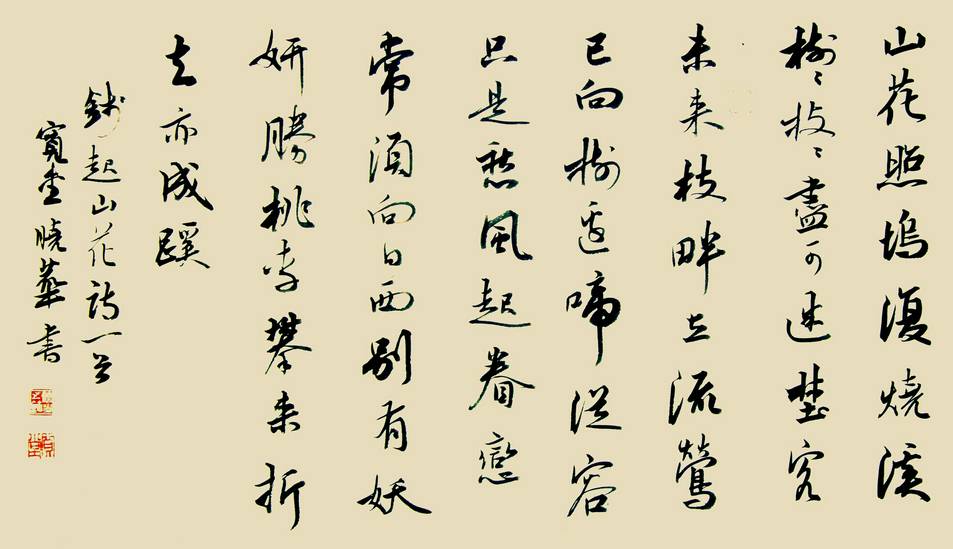 山花照塢復燒溪
樹〻枝〻盡可迷埜客
未来枝畔立流鶯
已向樹邊啼從容
只是愁風起眷戀
常須向日西別有妖
妍勝桃李攀来折
去亦成蹊
錢起山花詩一首
寬堂曉華書